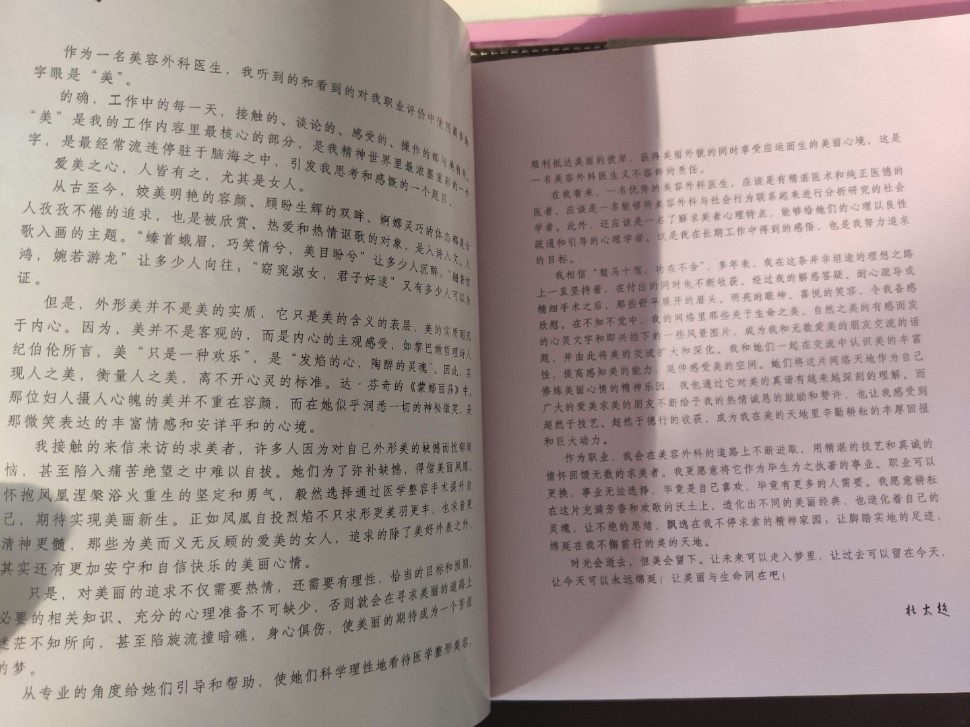 作为一名美容外科医生，我听到的和看到的对我职业评价中使用最多的
字眼是“美”。
的确，工作中的每一天，接触的、谈论的、感受的、操作的都与美有关，
“美”是我的工作内容里最核心的部分，是我精神世界里最浓墨重彩的一个
字，是最经常流连停驻于脑海之中，引发我思考和感慨的一个题目。
爱美之心，人皆有之，尤其是女人。
从古至今，姣美明艳的容颜、顾盼生辉的双眸、婀娜灵巧的体态都是女
人孜孜不倦的追求，也是被欣赏、热爱和热情讴歌的对象，是入诗入文、入
歌入画的主题。“螓首蛾眉，巧笑倩兮，美目盼兮”让多少人沉醉，“翩若惊
鸿，婉若游龙”让多少人向往，“窈窕淑女，君子好逑”又有多少人可以为
证。
但是，外形美并不是美的实质，它只是美的含义的表层，美的实质则源
于内心。因为，美并不是客观的，而是内心的主观感受，如黎巴嫩哲理诗人
纪伯伦所言，美“只是一种欢乐”，是“发焰的心，陶醉的灵魂”，因此，实
现人之美，衡量人之美，离不开心灵的标准。达·芬奇的《蒙娜丽莎》中，
那位妇人摄人心魄的美并不重在容颜，而在她似乎洞悉一切的神秘微笑，是
那微笑表达的丰富情感和安详平和的心境。
我接触的来信来访的求美者，许多人因为对自己外形美的缺憾而忧郁烦
恼，甚至陷入痛苦绝望之中难以自拔。她们为了弥补缺憾，得偿美丽夙愿，
怀抱凤凰涅槃浴火重生的坚定和勇气，毅然选择通过医学整容手术提升自
己，期待实现美丽新生。正如凤凰自投烈焰不只求形更美羽更丰，也求音更
清神更髓，那些为美而义无反顾的爱美的女人，追求的除了美好外表之外，
其实还有更加安宁和自信快乐的美丽心情。
只是，对美丽的追求不仅需要热情，还需要有理性，恰当的目标和预期，
必要的相关知识、充分的心理准备不可缺少，否则就会在寻求美丽的道路上
迷茫不知所向，甚至陷旋流撞暗礁，身心俱伤，使美丽的期待成为一个苦涩
的梦。
从专业的角度给她们引导和帮助，使她们科学理性地看待医学整形美容，
顺利抵达美丽的彼岸，获得美丽外貌的同时享受应运而生的美丽心境，这是
一名美容外科医生义不容辞的责任。
在我看来，一名优秀的美容外科医生，应该是有精湛医术和纯正医德的
医者，应该是一名能够将美容外科与社会行为联系起来进行分析研究的社会
学者。此外，还应该是一名了解求美者心理特点，能够给她们的心理以良性
疏通和引导的心理学者。这是我在长期工作中得到的感悟，也是我努力追求
的目标。
我相信“驽马十驾，功在不舍”，多年来，我在这条并非坦途的理想之路
上一直坚持着，在付出的同时也不断收获。经过我的解惑答疑、耐心疏导或
精细手术之后，那些舒平展开的眉头、明亮的眼神、喜悦的笑容，令我备感
欣慰。在不知不觉中，我的网络里那些关于生命之美、自然之美的有感而发
的心灵文字和即兴拍下的一些风景图片，成为我和无数爱美的朋友交流的话
题，并由此将美的交流扩大和深化。我和她们一起在交流中认识美的丰富
性，提高感知美的能力，延伸感受美的空间。她们将这片网络天地作为自己
修炼美丽心情的精神乐园，我也通过它对美的真谛有越来越深刻的理解。而
广大的爱美求美的朋友不断给予我的热情诚恳的鼓励和赞许，也让我感受到
超然于技艺、超然于德行的收获，成为我在美的天地里辛勤耕耘的丰厚回报
和巨大动力。
作为职业，我会在美容外科的道路上不断进取，用精湛的技艺和真诚的
情怀回馈无数的求美者。我更愿意将它作为毕生为之执著的事业。职业可以
更换，事业无法选择，毕竟是自己喜欢，毕竟有更多的人需要。我愿意耕耘
在这片充满芳香和欢歌的沃土上，造化出不同的美丽经典，也造化着自己的
灵魂，让不绝的思绪，飘逸在我不停求索的精神家园，让脚踏实地的足迹，
绵延在我不懈前行的美的天地。
时光会逝去，但美会留下。让未来可以走入梦里，让过去可以留在今天，
让今天可以永远绵延；让美丽与生命同在吧！
杜太超